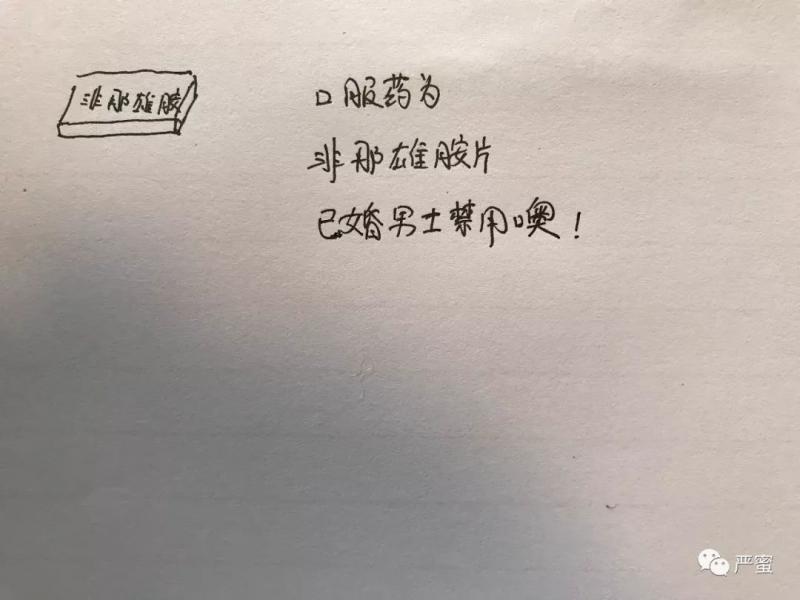 非那雄胺
口服药为
非那雄胺片
已婚男士禁用噢！
严蜜